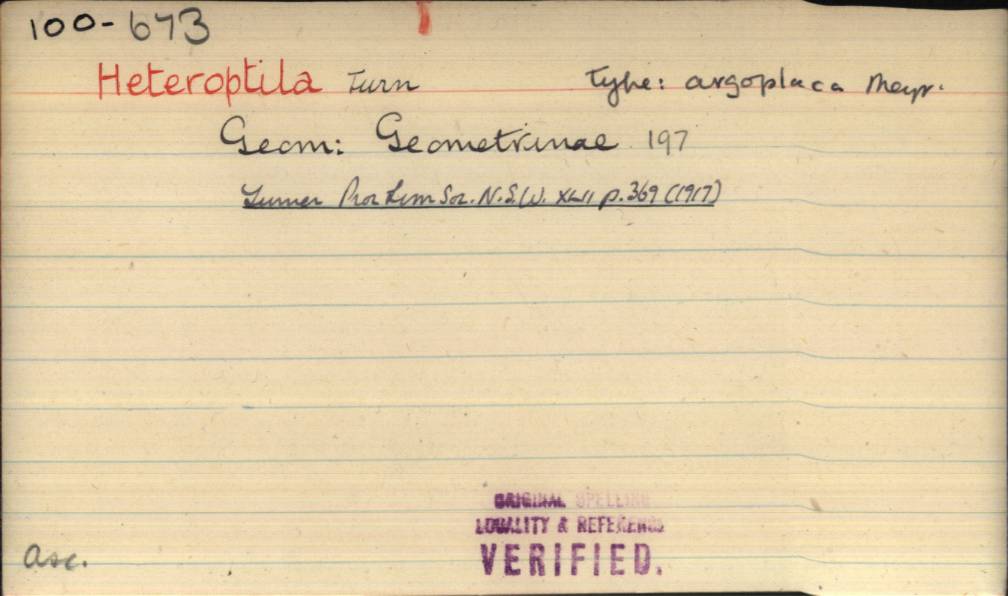 100-673
Heteroptila Turn Type: argoplaca Meyr.
Geom: Geometrinae 197
Turner Proc Linn Soc. N.S.W. XLII p. 369 (1917)
ORIGINAL SPELLING
LOCALITY & REFERENCE
VERIFIED.
asc.